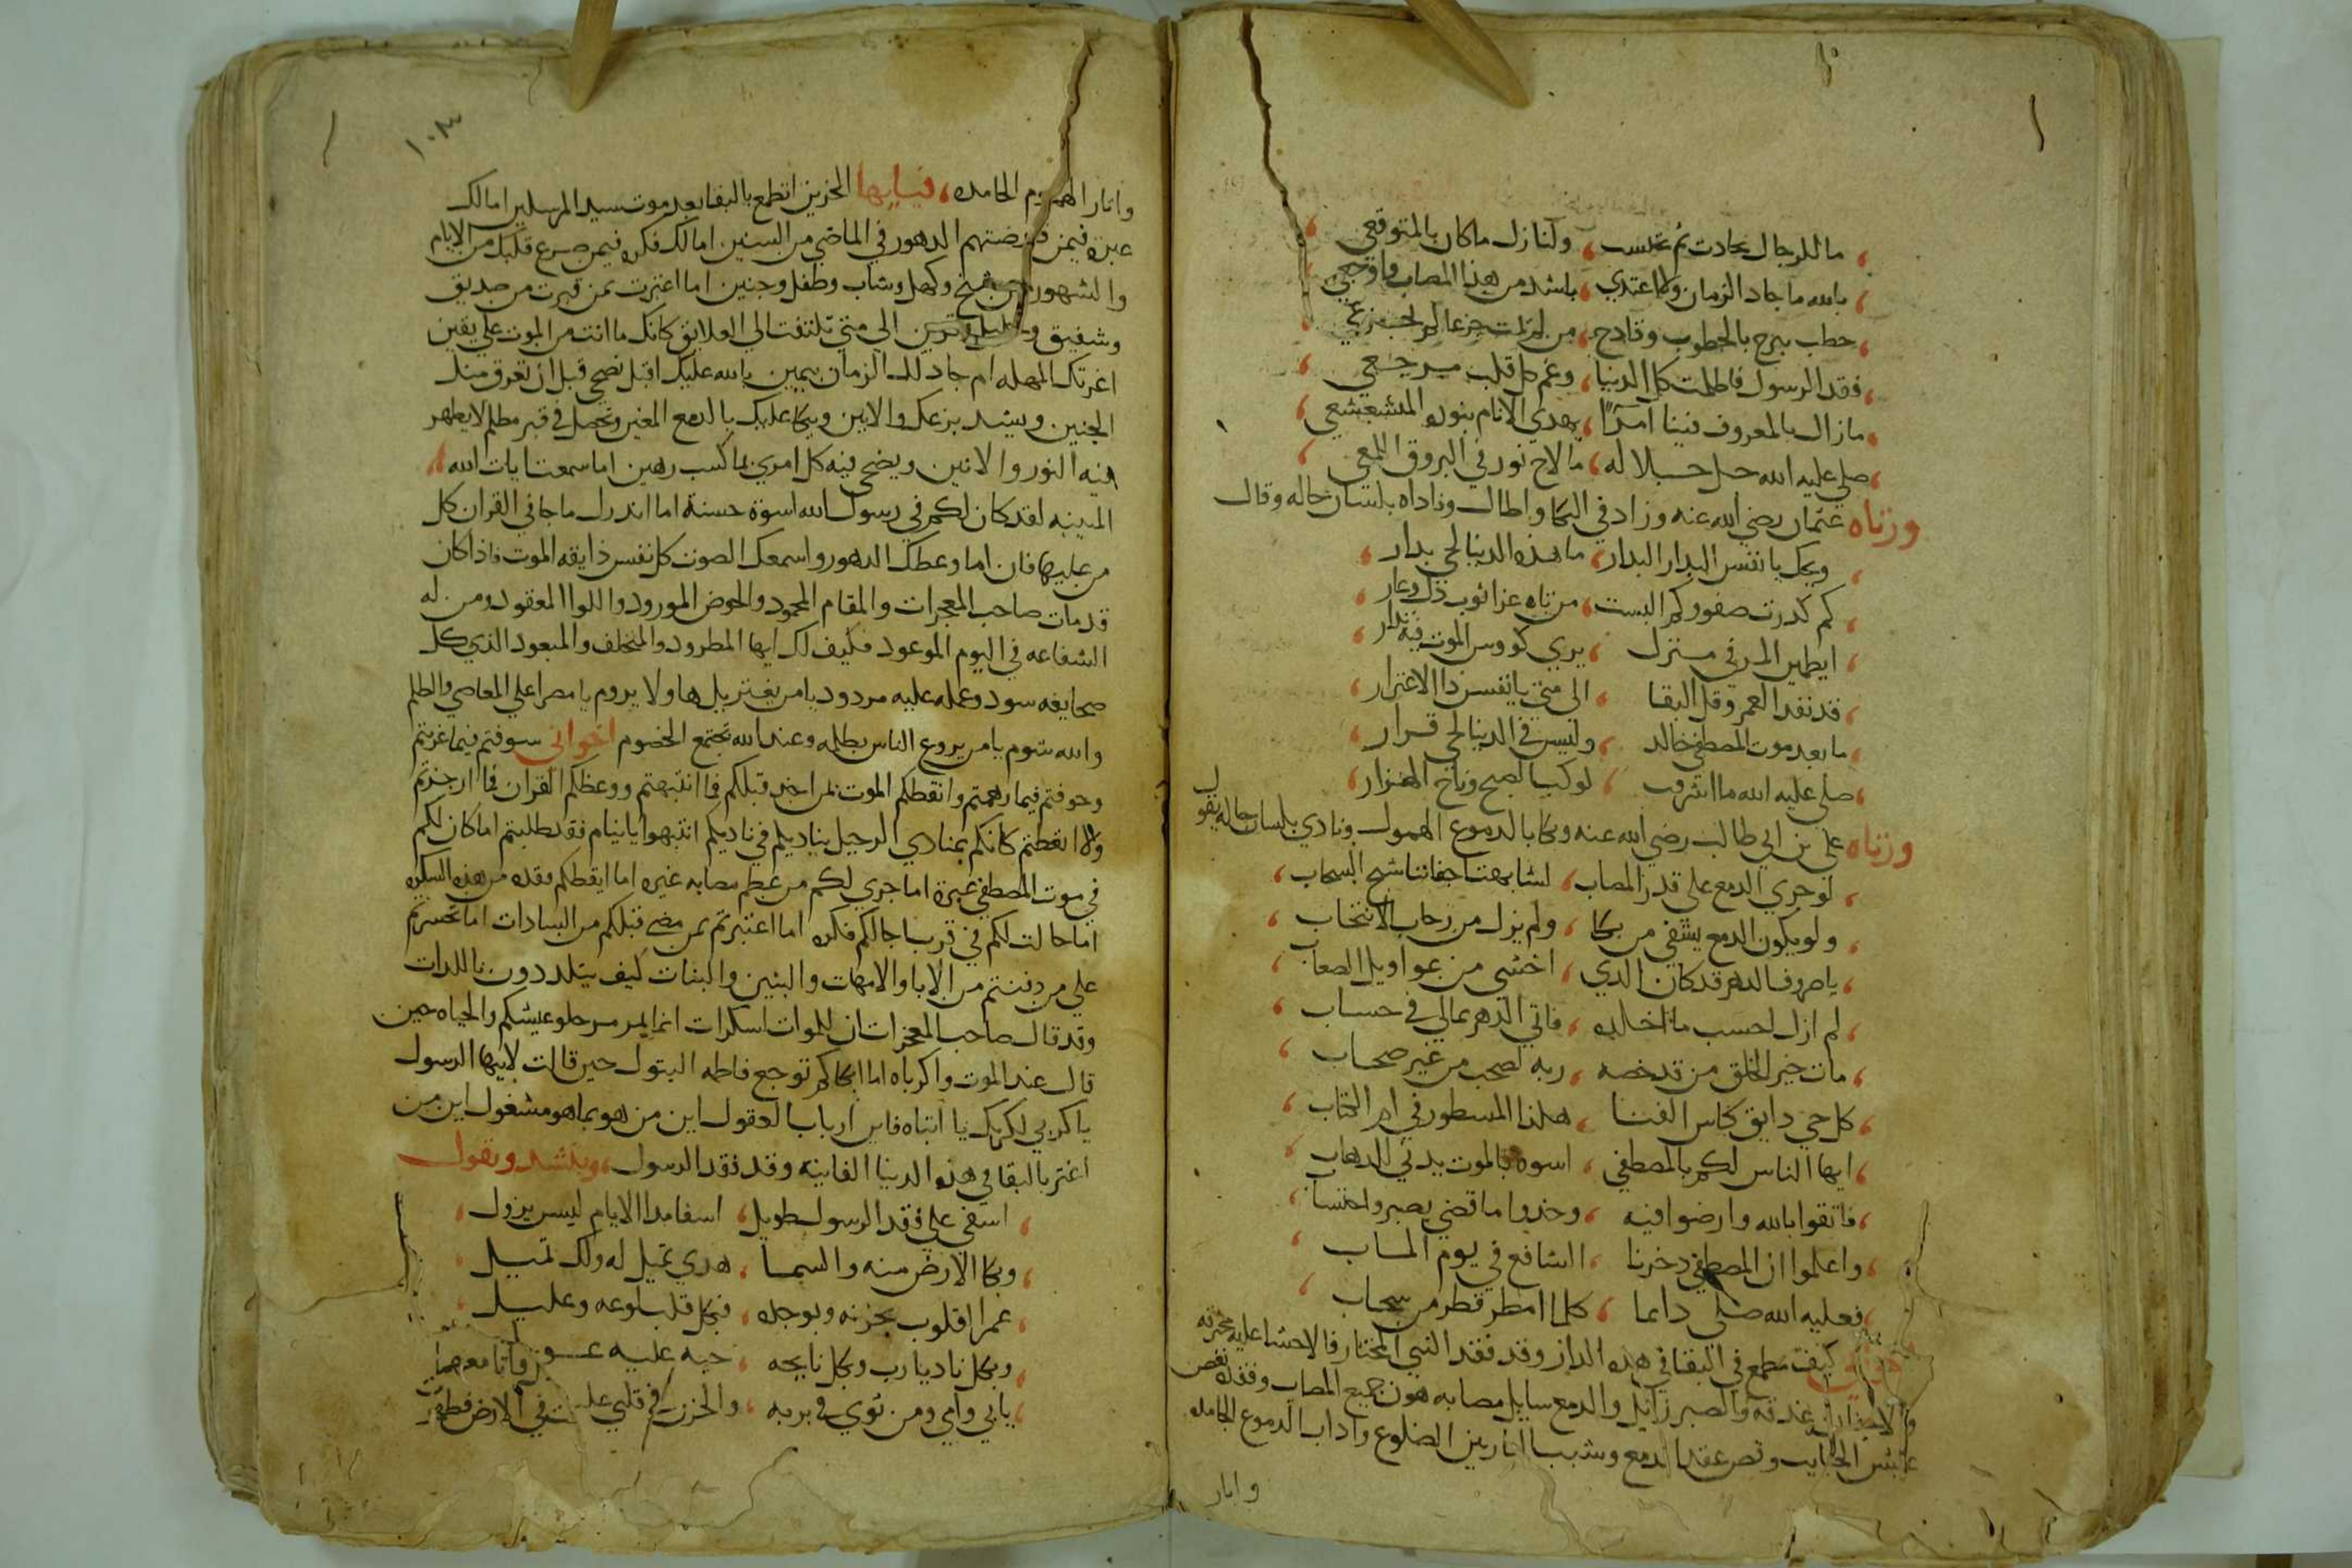 ما للرجال بحادث ثم تحسب ولنازل ما كان بالمتوقعي
بالله ما جاد الزمان ولا اعتدي باشد من هذا المصاب واوجعي
خطب يبرح بالخطوب وقادح من لم يمت جزعا له لم يجزعي
فقد الرسول فاظلمت كل الدنيا وغم كل قلب مرجعي
مازال بالمعروف فينا امرًا يهدي الانام بنوره المتشعشعي
صلي عليه الله جل جلاله ما لاح نور في البروق اللمعي
ورثاه عثمان رضي الله عنه وزاد في البكا واطال وناداه بلسان حاله وقال
ويحك يا نفس البدار البدار ما هذه الدنيا لحي بدار
كم كدرت صفو وكم البست من تاه عزا ثوب ذل وعار
ايطمين المر في منزل يري كووس الموت فيه تدار
قد نفد العمر وقل البقا الى متي يا نفس ذا الاغترار
ما بعد موت المصطفي خالد وليس في الدنيا لحي قرار
صلي عليه الله ما اشرقت لوكب الصبح وناح الهزار
ورثاه علي بن ابي طالب رضي الله عنه وبكا بالدموع الهمول ونادي بلسان حاله يقول
لو جري الدمع على قدر المصاب لشابهت اجفاننا سح السحاب
ولو يكون الدمع يشفي من بكا ولم يزل من رحاب الانتحاب
يا صروف الدهر قد كان الذي اخشي من عواويل الصعاب
لم ازل احسب ما اخلده فاتي الدهر بمالي في حساب
مات خير الخلق من قد خصه ربه لصحب من غير صحاب
كل حي دايق بكاس الفنا هكذا المسطور في ام الكتاب
ايها الناس لكم بالمصطفي اسوه بالموت يدني للدهاب
فاتقوا بالله وارضوا فيه وخذوا ما قضي بصبر واحتساب
واعلموا ان المصطفي دخرنا الشافع في يوم الماب
فعليه الله صلى دايما كلما امطر قطر من سحاب
كيف تطمع في البقا في هذه الدار وقد فقد النبي المختار فالاحشا عليه محترقه
غدقه والصبر زايل والدمع سايل مصابه هون جميع المصاب وفقده نغص
عيش الحبايب وقص عقد الدمع وشبب النار بين الضلوع واذاب الدموع الجامده
وانار
١٠٣
وانار الهموم الخامده، فيا ايها الحزين اتطمع بالبقا بعد موت سيد المرسلين اما لك
عبرة فيمن قرضتهم الدهور في الماضي من السنين اما لك فكره فيمن صرع قبلك من الايام
والشهور من شيخ وكهل وشاب وطفل وجنين اما اعتبرت بمن قبرت من صديق
وشفيق وخليل وقرين الي متي تلتفت الي العلايق كانك ما انت من الموت علي يقين
اغرتك المهله ام جاد لك الزمان بيمين بالله عليك اقبل نصحي قبل ان تعرق منك
الجبين ويشتد بزعك والانين ويبكا عليك بالدمع المعين وتحصل في قبر مظلم لا يظهر
فيه النور والانين ويضحي فيه كل امري بما كسب رهين اما سمعت ايات الله
المبينه لقد كان لكم في رسول الله اسوة حسنة اما انذرك ما جا في القران كل
من عليها فان اما وعظك الدهور واسمعك الصوت كل نفس ذايقه الموت فاذا كان
قد مات صاحب المعجزات والمقام المحمود والحوض المورود واللوا المعقود ومن له
الشفاعه في اليوم الموعود فكيف لك ايها المطرود والمتخلف والمبعود الذي كل
صحايفه سود وعمله عليه مردود يا من يغتر بل ها ولا يروم يا مصرا علي المعاصي والظلم
والله شوم يا من يروع الناس بظلمه وعند الله تجتمع الخصوم اخواني سوفتم فيما غرتم
وخوفتم فيما رهمتم وانقظكم الموت بمن اخذ قبلكم فما انتبهتم ووعظكم القران فما ازجرتم
ولا اتعظتم كانكم بمنادي الرحيل يناديكم في ناديكم انتبهوا يا نيام فقد طلبتم اما كان لكم
في موت المصطفي عبرة اما جري لكم من عظم مصابه غيره اما ايقظكم فقده من هذه السكره
اما حالت لكم في قرب اجالكم فكره اما اعتبرتم بمن مضي قبلكم من السادات اما تحسرتم
علي من دفنتم من الابا والامهات والبنين والبنات كيف يتلددون باللدات
وقد قال صاحب المعجزات ان للموات لسكرات انما يمر مر حلو عيشكم والحياه حين
قال عند الموت واكرباه اما ابكاكم توجع فاطمه البتول حين قالت لابيها الرسول
يا كربي لكربك يا ابتاه فاين ارباب العقول اين من هو بما هو مشغول اين من
اغتر بالبقا في هذه الدنيا الفانيه وقد فقد الرسول، وينشد ويقول
اسفي علي فقد الرسول طويل اسفا مدا الايام ليس يزول
وبكا الارض منه والسما هذي تميل له وتلك تميل
عمر القلوب بحزنه وبوجده فبكل قلب لوعه وعليل
وبكل ناد يا رب وبكل نايحه عليه
يا بي وامي ومن ثوي في بربه والحزن في قلبي في الارض